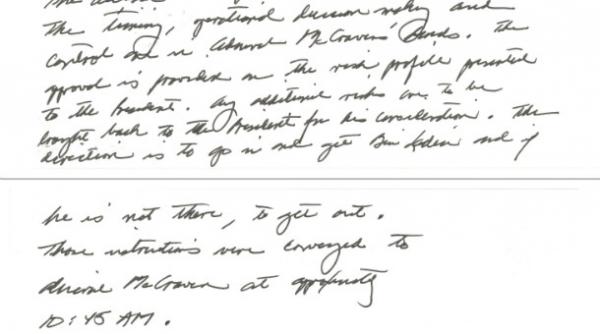 the timing, operational decision making and
control are in Admiral McCraven's hands. The
approval is provided on the risk profile presented
to the President. Any additional risks are to be
brought back to the President for his consideration. The
direction is to go in and get Bin Laden and if
he is not there, to get out.
Those instructions were conveyed to
Admiral McCraven at approximately
10:45 AM.